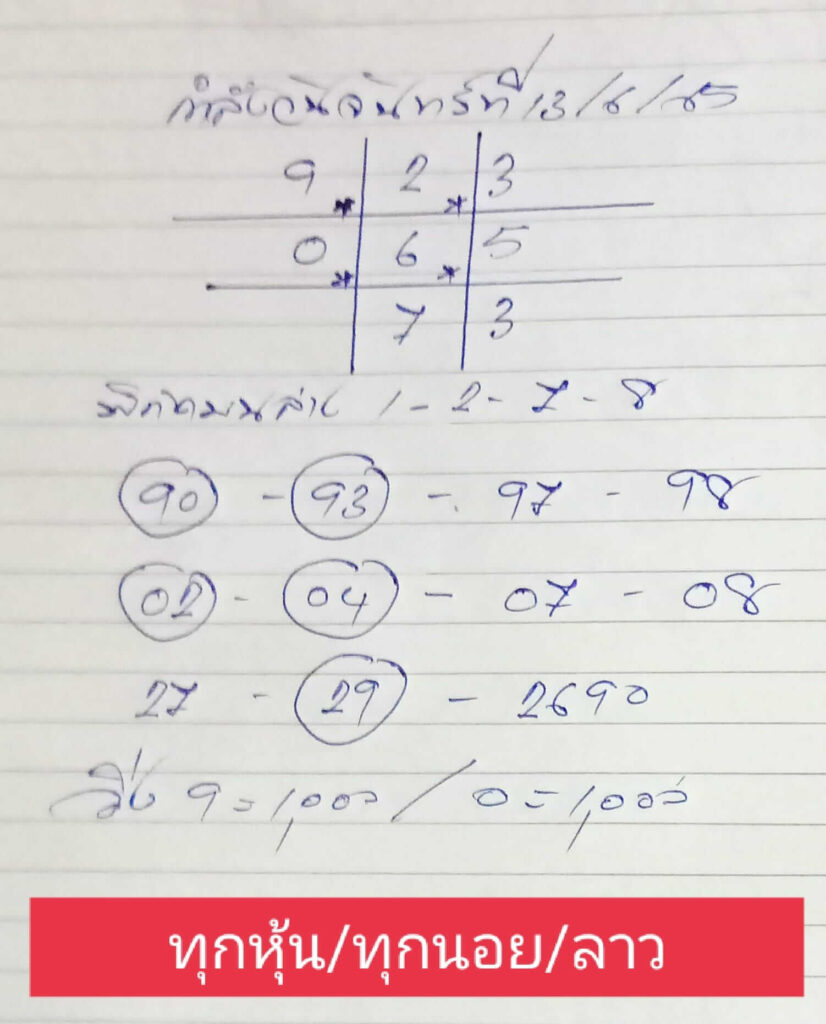 กำลังวันจันทร์ที่ 13/6/65
9 2 3
0 6 5
7 3
พิกัดบนล่าง 1-2-7-8
90 - 93 - 97 - 98
02 - 04 - 07 - 08
27 - 29 - 2690
วิ่ง 9=1,000 / 0=1,000
ทุกหุ้น/ทุกนอย/ลาว